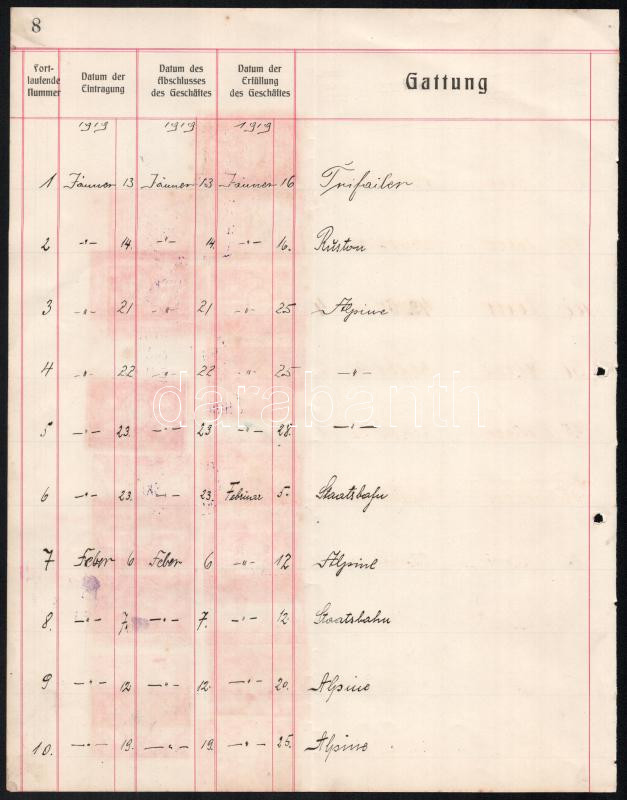 8
Fort-
laufende
Nummer
Datum der
Eintragung
Datum des
Abschlusses
des Geschäftes
Datum der
Erfüllung
des Geschäftes
Gattung
1919 1919 1919
1 Jänner 13 Jänner 13 Jänner 16 Trifailer
2 -"- 14. -"- 14 -"- 16. Ruston
3 -"- 21 -"- 21 -"- 25 Alpine
4 -"- 22 -"- 22 -"- 25 -"-
5 -"- 23. -"- 23 -"- 28. -"-
6 -"- 23. -"- 23. Februar 5. Staatsbahn
7 Feber 6 Feber 6 -"- 12 Alpine
8. -"- 7. -"- 7. -"- 12. Staatsbahn
9 -"- 12 -"- 12. -"- 20. Alpine
10. -"- 19. -"- 19. -"- 25. Alpine
darabanth